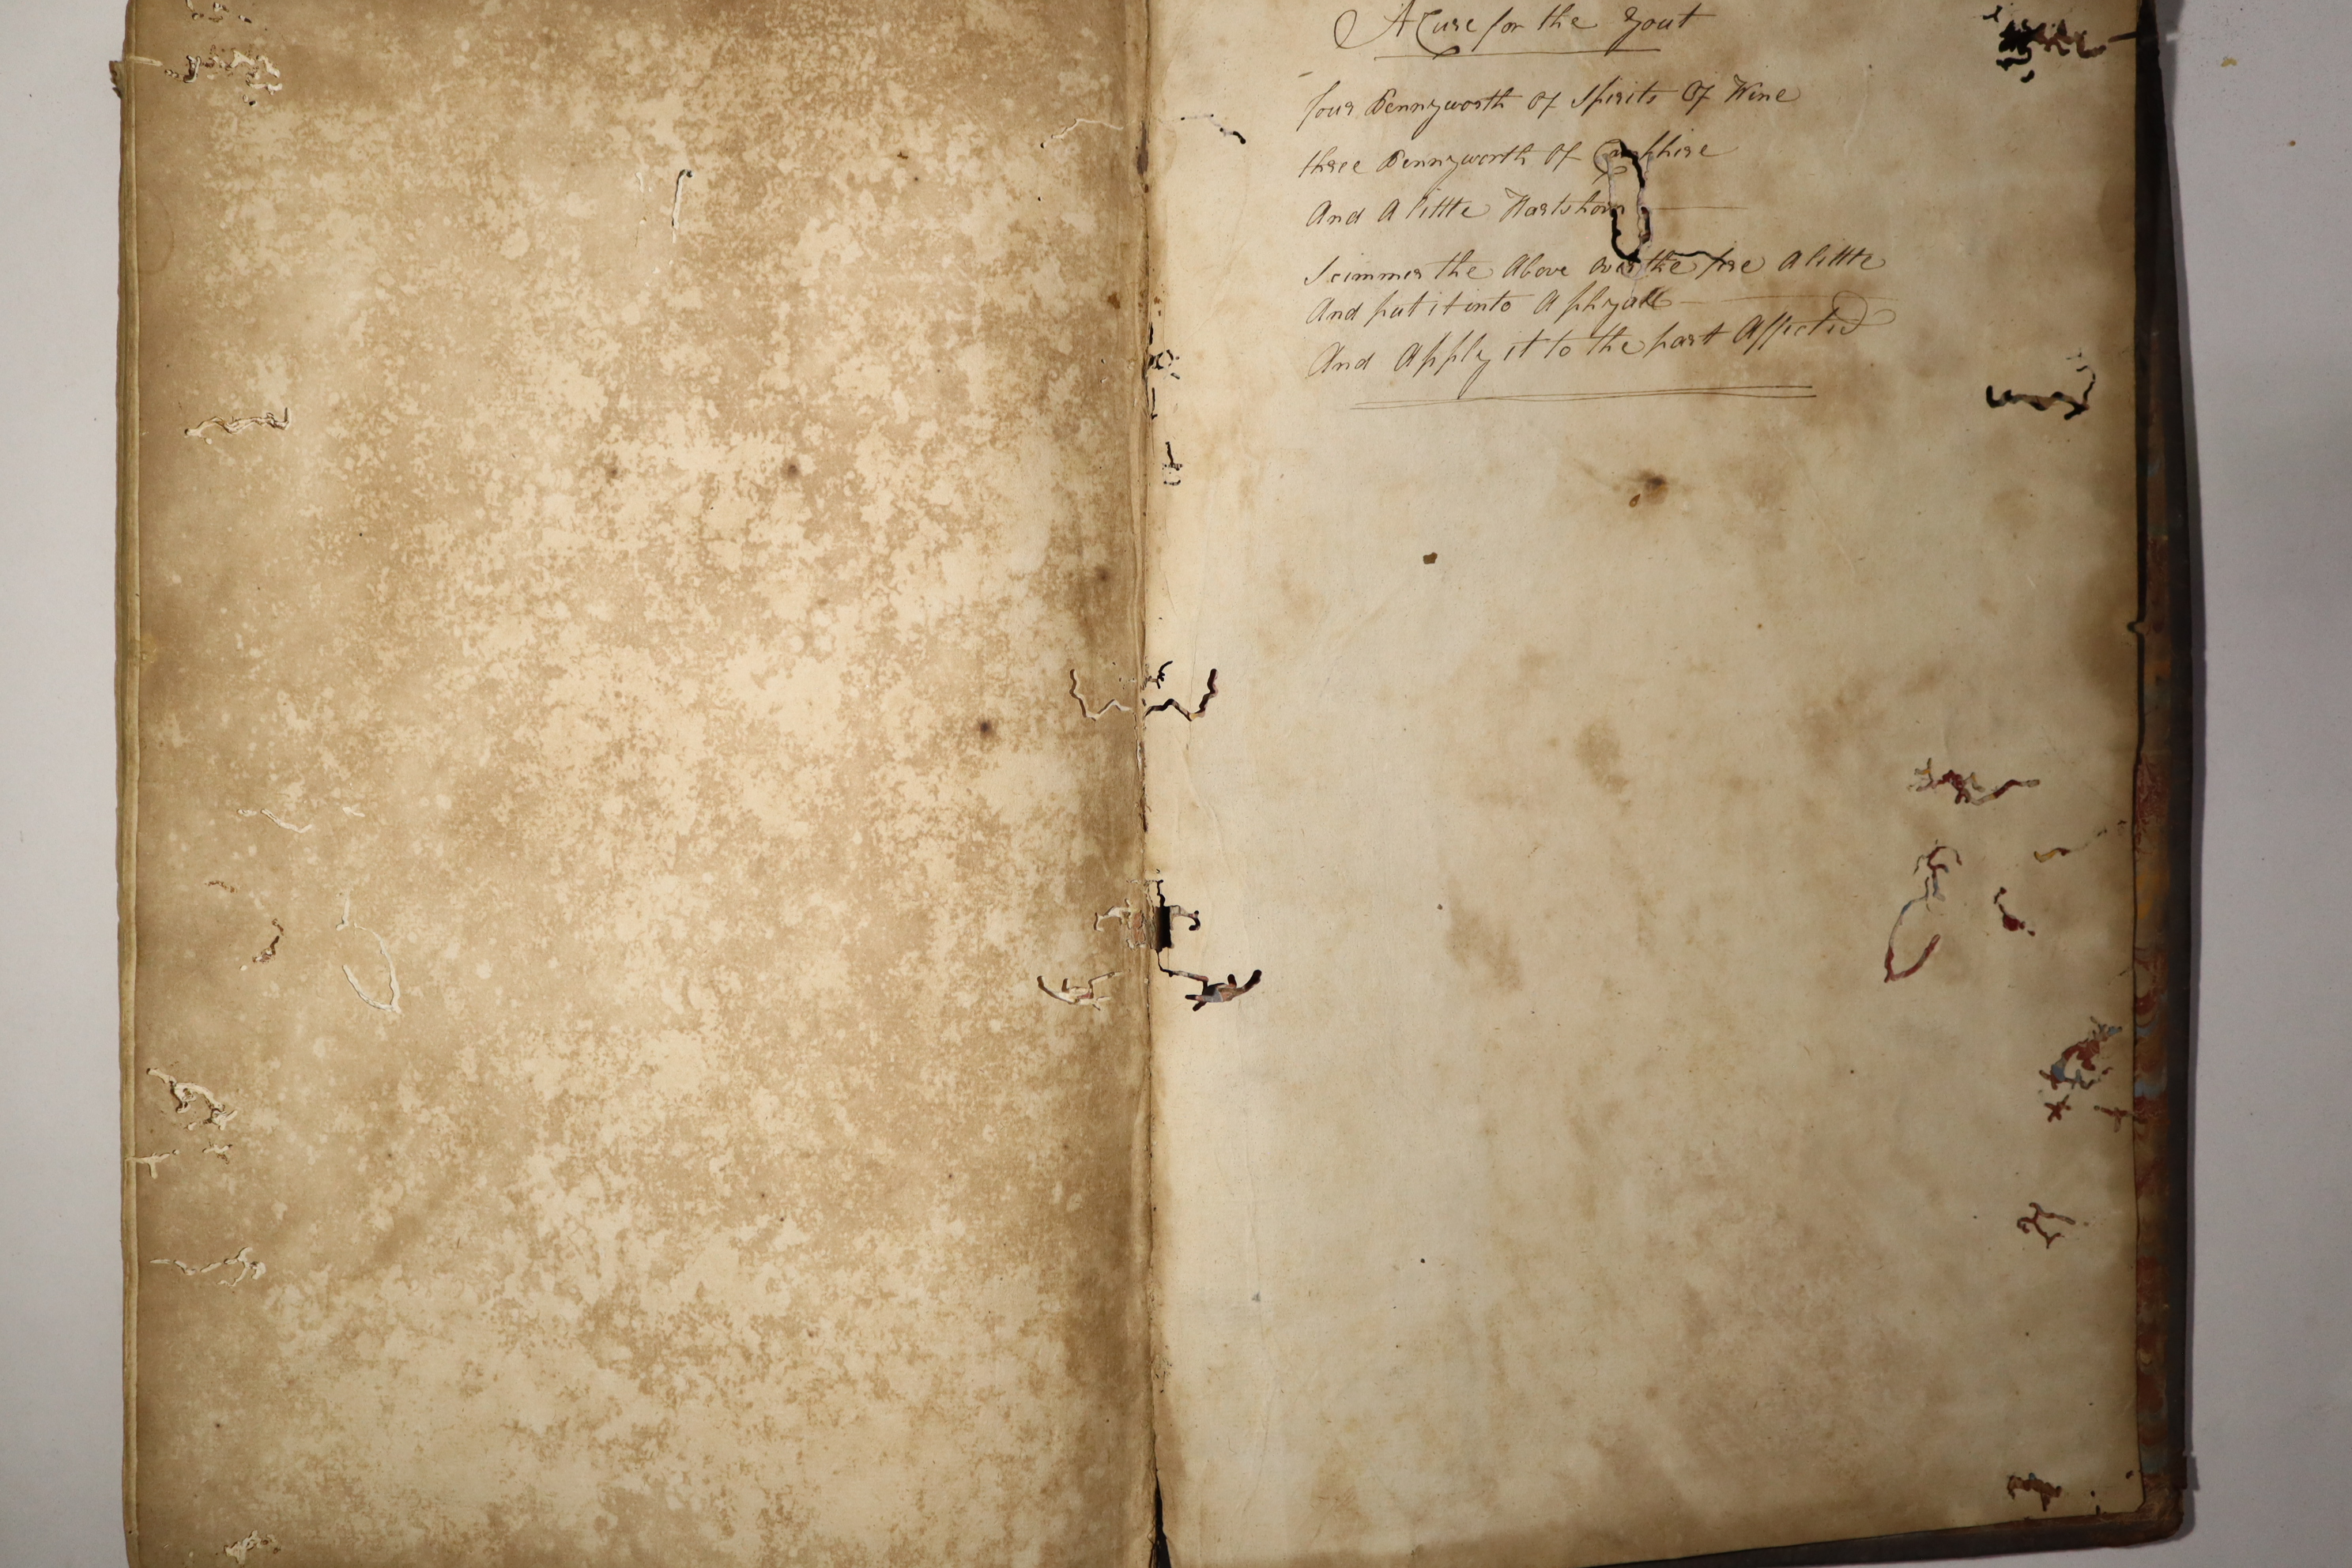 A Cure for the Gout
four Pennyworth of Spirits Of Wine
three Pennyworth Of Camphire
And A little Hartshorn
Scimmer the Above over the fire A little
And put it into A phyall
And Apply it to the part Affected